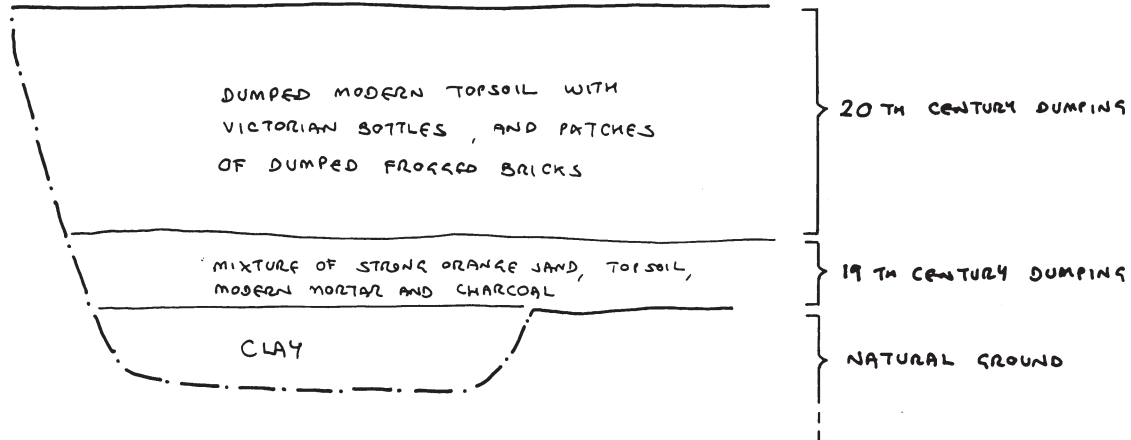 DUMPED MODERN TOPSOIL WITH
VICTORIAN BOTTLES, AND PATCHES
OF DUMPED FROGGED BRICKS
20TH CENTURY DUMPING
MIXTURE OF STRONG ORANGE SAND, TOPSOIL,
MODERN MORTAR AND CHARCOAL
19TH CENTURY DUMPING
CLAY
NATURAL GROUND